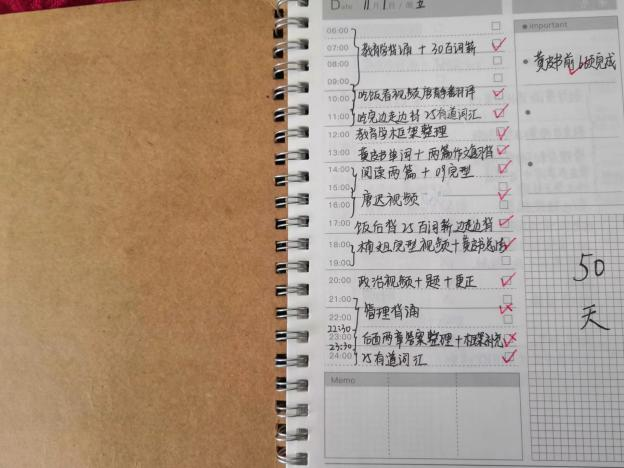 Date 11月1日/周五
06:00
07:00 教育学背诵 + 30百词斩
08:00
09:00
10:00 吃饭看视频唐静翻译
11:00 吃完边走边背 25有道词汇
12:00 教育学木框架整理
13:00 黄皮书单词 + 两篇作文复习背
14:00 阅读两篇 + 09完型
15:00
16:00 唐迟视频
17:00 饭后背25百词斩边走边背
18:00 完型视频 + 黄皮书
19:00
20:00 政治视频 + 题 + 更正
21:00
22:00 管理背诵
22:30
23:00 后面两章答案整理 + 框架补充
23:30
24:00 25有道词汇
Memo
important
黄皮书前 完成
50
天